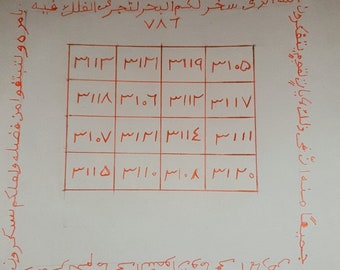 الله الذي سخر لكم البحر لتجري الفلك فيه
٧٨٦
٣١١٣ ٣١١٦ ٣١١٩ ٣١٠٥
٣١١٨ ٣١٠٦ ٣١١٢ ٣١١٧
٣١٠٧ ٣١٢١ ٣١١٤ ٣١١١
٣١١٥ ٣١١٠ ٣١٠٨ ٣١٢٠
بامره ولتبتغوا من فضله ولعلكم تشكرون
لكم ما في السموات وما في الارض
جميعا منه ان في ذلك لايات لقوم يتفكرون